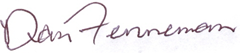 Dan Fenneman